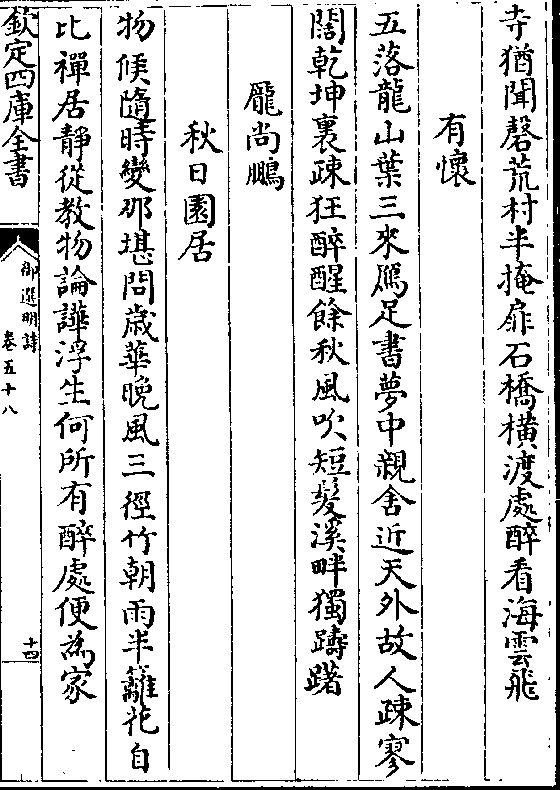 寺猶聞磬荒村半掩扉石橋横渡處醉看海雲飛
有懷
五落龍山葉三來鴈足書夢中親舍近天外故人疎寥
闊乾坤裏疎狂醉醒餘秋風吹短髪溪畔獨躊躇
龎尚鵬
秋日園居
物候隨時變那堪問歳華晚風三徑竹朝雨半籬花自
比禪居靜從教物論譁浮生何所有醉處便為家
欽定四庫全書
御選明詩
卷五十八
十四